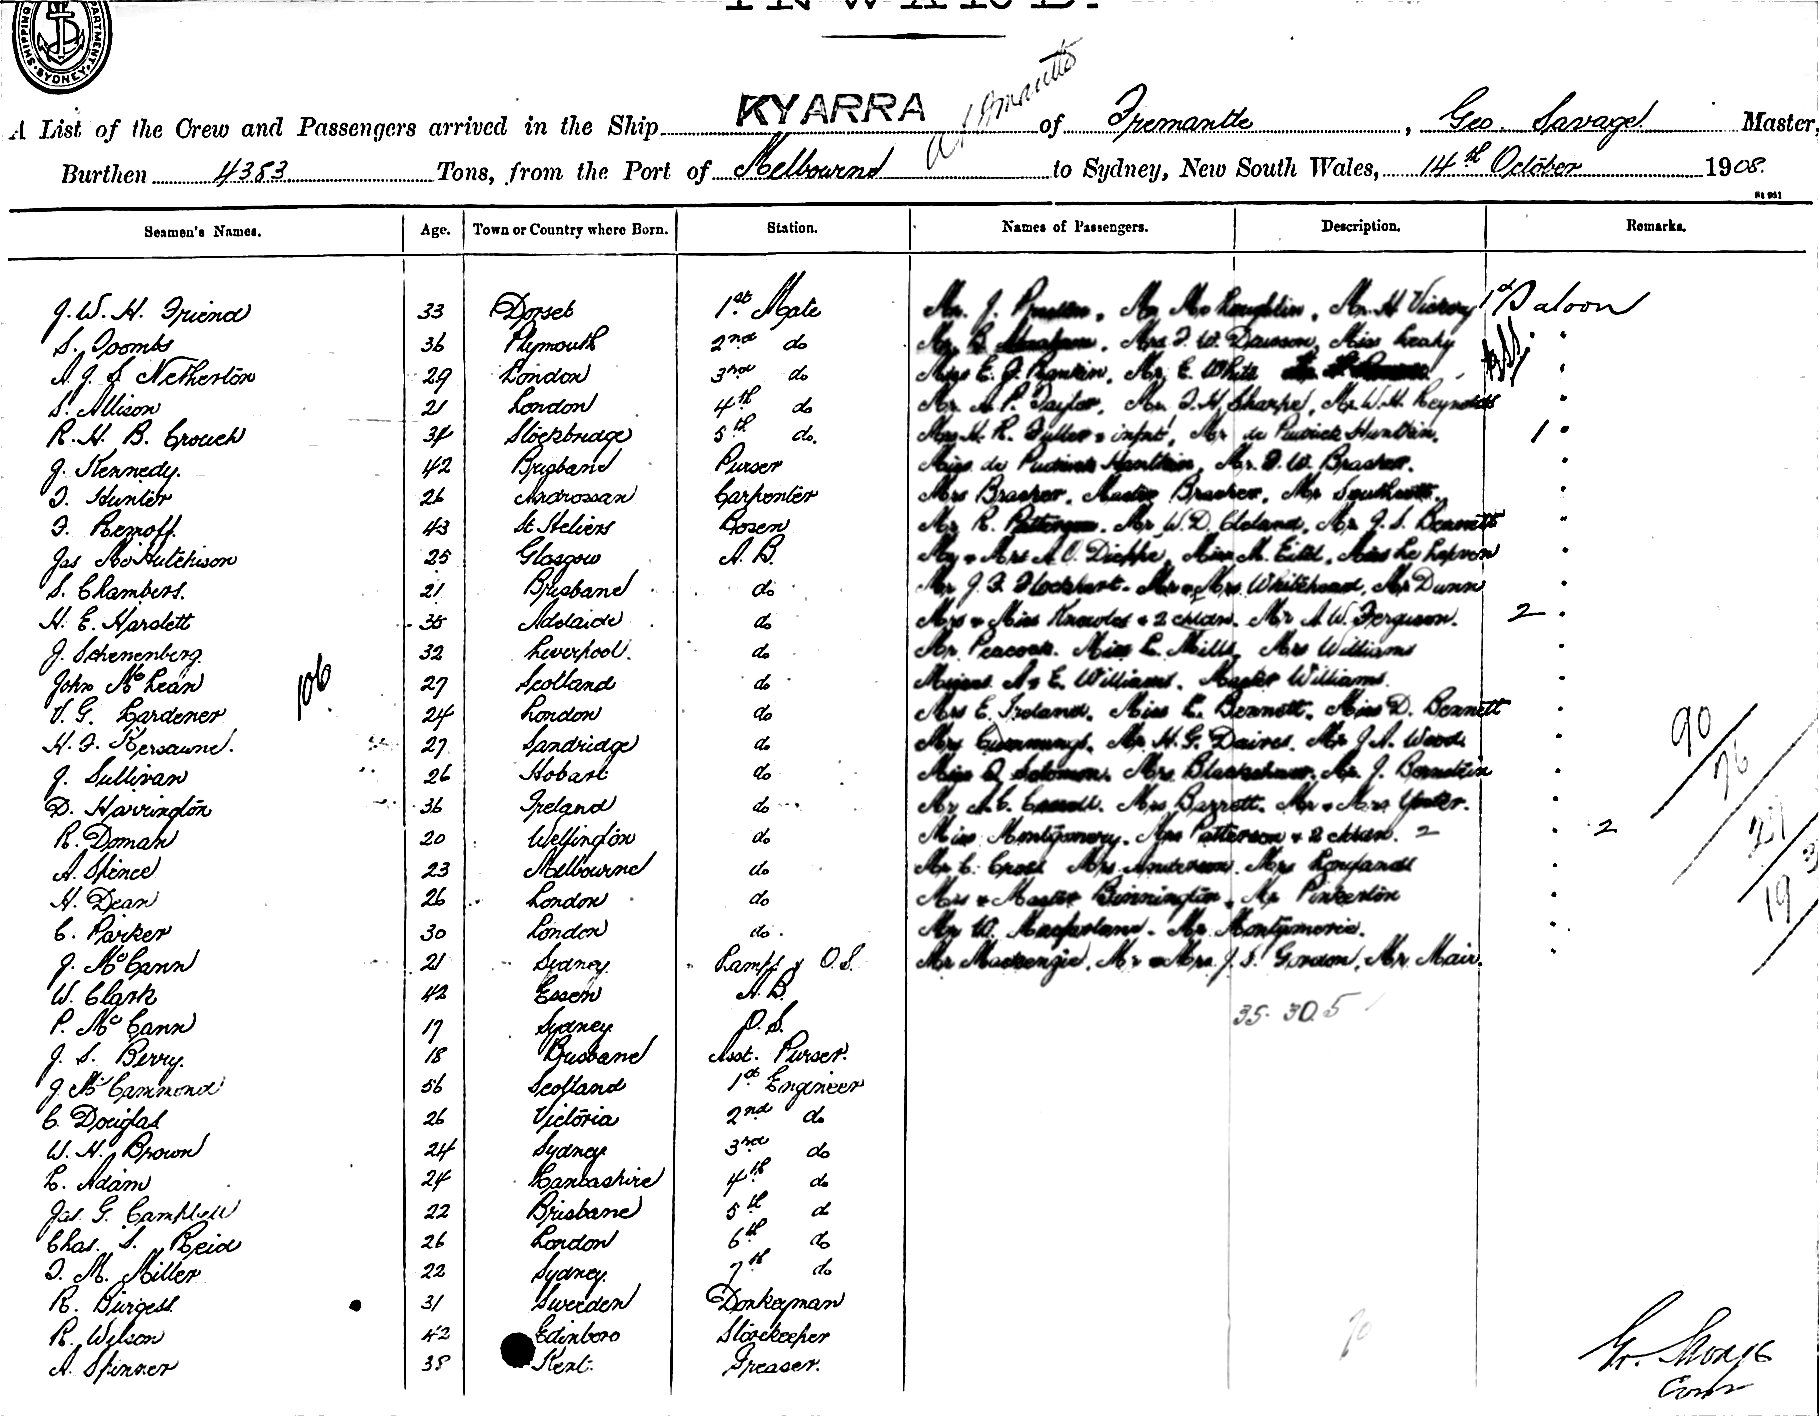 SHIPPING DEPARTMENT. SYDNEY
INWARD.
A List of the Crew and Passengers arrived in the Ship KYARRA of Fremantle, Geo. Savage Master,
Burthen 4383 Tons, from the Port of Melbourne to Sydney, New South Wales, 14th October 1908.
Seamen's Names. Age. Town or Country where Born. Station. Names of Passengers. Description. Remarks.
J. W. H. Friend 33 Dorset 1st Mate Mr. J. Mr. Mc Loughlin, Mr. H Vickery 1st Saloon
S. Toombs 36 Plymouth 2nd do Mr. B. Abraham, Mrs. F. W. Dawson, Miss Leahy "
A. J. S. Netherton 29 London 3rd do Miss E. J. Rankin, Mr. E. White "
S. Allison 21 London 4th do Mr. A. P. Taylor, Mr. F. H. Sharpe, Mr. W. H. Reynolds "
R. H. B. Crouch 34 Stockbridge 5th do. Mrs H. R. Fuller & infnt, Mr de 1 "
J. Kennedy. 42 Brisbane Purser Miss de Mr. F. W. Brasher. "
T. Hunter 26 Ardrossan Carpenter Mrs Brasher, Master Brasher, Mr "
F. Remoff. 43 St Heliers Bosen Mr R. Patterson. Mr W. D. Cleland, Mr. J. S. Bennett "
Jas McHutchison 25 Glasgow A. B. Mr & Mrs A. O. Dieppe, Miss M. Miss "
S. Chambers. 21 Brisbane do Mr J. F. Flockhart. Mr & Mrs Whitehead, Mr Dunn "
H. E. Harslett 35 Adelaide do Mrs & Miss Knowles & 2 chldn. Mr A. W. Ferguson. 2 "
J. Schenenberg. 32 Liverpool. do Mr. Peacock. Miss L. Mills, Mrs Williams "
John McLean 106 27 Scotland do Misses A & E. Williams. Master Williams. "
V. G. Gardener 24 London do Mrs E. Ireland, Miss L. Bennett, Miss D. Bennett "
H. F. Kersaune. 27 Sandridge do Mrs Cummings, Mr. H. G. Daires. Mr J. A. Wood. " 90
J. Sullivan 26 Hobart do Miss Solomon. Mrs. Mr. J. Bernstein " 76
D. Harrington 36 Ireland do Mr A. C. Mrs Barrett. Mr & Mrs "
R. Doman 20 Wellington do Miss Montgomery. Mrs Patterson & 2 chldn. 2 " 2
A. Spence 23 Melbourne do Mr C. Cross Mrs. Anderson. Mrs "
H. Dean 26 London do Mrs & Master Binnington, Mr Pinkerton " 19
C. Parker 30 London do. Mr W. Macfarlane. Mr Montgomerie. "
J. McCann 21 Sydney Lamps & O. S. Mr Mackenzie, Mr & Mrs J. S. Gordon, Mr. Mair. "
W. Clark 42 Essen A. B.
P. McCann 17 Sydney O. S. 35. 30. 5
J. S. Berry. 18 Brisbane Asst. Purser.
J. McCammond 56 Scotland 1st Engineer
C. Douglas 26 Victoria 2nd do
W. H. Brown 24 Sydney 3rd do
L. Adam 24 Lancashire 4th do
Jas. G. Campbell 22 Brisbane 5th d
Chas. S. Reid 26 London 6th do
T. M. Miller 22 Sydney. 7th do
R. Burgess. 31 Sweden Donkeyman
R. Wilson 42 Edinboro Storekeeper
A. Spinner 38 Kent. Greaser.